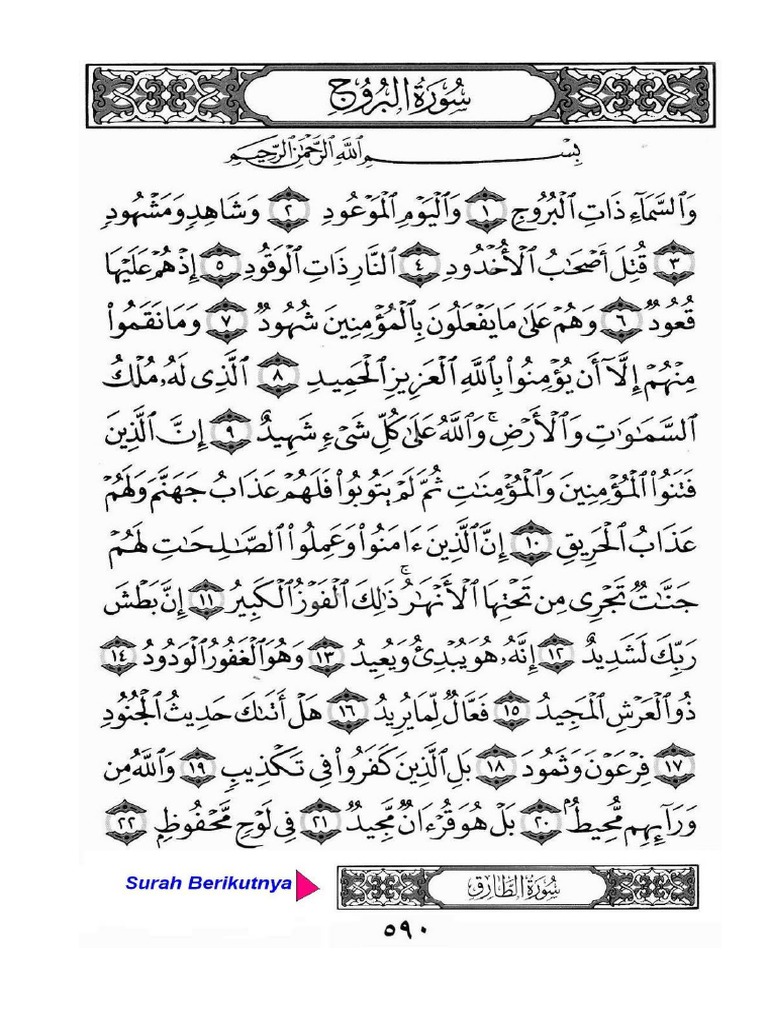 سُورَةُ الْبُرُوجِ
بِسْمِ ٱللَّهِ ٱلرَّحْمَٰنِ ٱلرَّحِيمِ
وَٱلسَّمَآءِ ذَاتِ ٱلْبُرُوجِ ١ وَٱلْيَوْمِ ٱلْمَوْعُودِ ٢ وَشَاهِدٍ وَمَشْهُودٍ
٣ قُتِلَ أَصْحَٰبُ ٱلْأُخْدُودِ ٤ ٱلنَّارِ ذَاتِ ٱلْوَقُودِ ٥ إِذْ هُمْ عَلَيْهَا
قُعُودٌ ٦ وَهُمْ عَلَىٰ مَا يَفْعَلُونَ بِٱلْمُؤْمِنِينَ شُهُودٌ ٧ وَمَا نَقَمُوا۟
مِنْهُمْ إِلَّآ أَن يُؤْمِنُوا۟ بِٱللَّهِ ٱلْعَزِيزِ ٱلْحَمِيدِ ٨ ٱلَّذِى لَهُۥ مُلْكُ
ٱلسَّمَٰوَٰتِ وَٱلْأَرْضِ ۚ وَٱللَّهُ عَلَىٰ كُلِّ شَىْءٍ شَهِيدٌ ٩ إِنَّ ٱلَّذِينَ
فَتَنُوا۟ ٱلْمُؤْمِنِينَ وَٱلْمُؤْمِنَٰتِ ثُمَّ لَمْ يَتُوبُوا۟ فَلَهُمْ عَذَابُ جَهَنَّمَ وَلَهُمْ
عَذَابُ ٱلْحَرِيقِ ١٠ إِنَّ ٱلَّذِينَ ءَامَنُوا۟ وَعَمِلُوا۟ ٱلصَّٰلِحَٰتِ لَهُمْ
جَنَّٰتٌ تَجْرِى مِن تَحْتِهَا ٱلْأَنْهَٰرُ ۚ ذَٰلِكَ ٱلْفَوْزُ ٱلْكَبِيرُ ١١ إِنَّ بَطْشَ
رَبِّكَ لَشَدِيدٌ ١٢ إِنَّهُۥ هُوَ يُبْدِئُ وَيُعِيدُ ١٣ وَهُوَ ٱلْغَفُورُ ٱلْوَدُودُ ١٤
ذُو ٱلْعَرْشِ ٱلْمَجِيدُ ١٥ فَعَّالٌ لِّمَا يُرِيدُ ١٦ هَلْ أَتَىٰكَ حَدِيثُ ٱلْجُنُودِ
١٧ فِرْعَوْنَ وَثَمُودَ ١٨ بَلِ ٱلَّذِينَ كَفَرُوا۟ فِى تَكْذِيبٍ ١٩ وَٱللَّهُ مِن
وَرَآئِهِم مُّحِيطٌۢ ٢٠ بَلْ هُوَ قُرْءَانٌ مَّجِيدٌ ٢١ فِى لَوْحٍ مَّحْفُوظٍۭ ٢٢
Surah Berikutnya
سُورَةُ الطَّارِقِ
٥٩٠